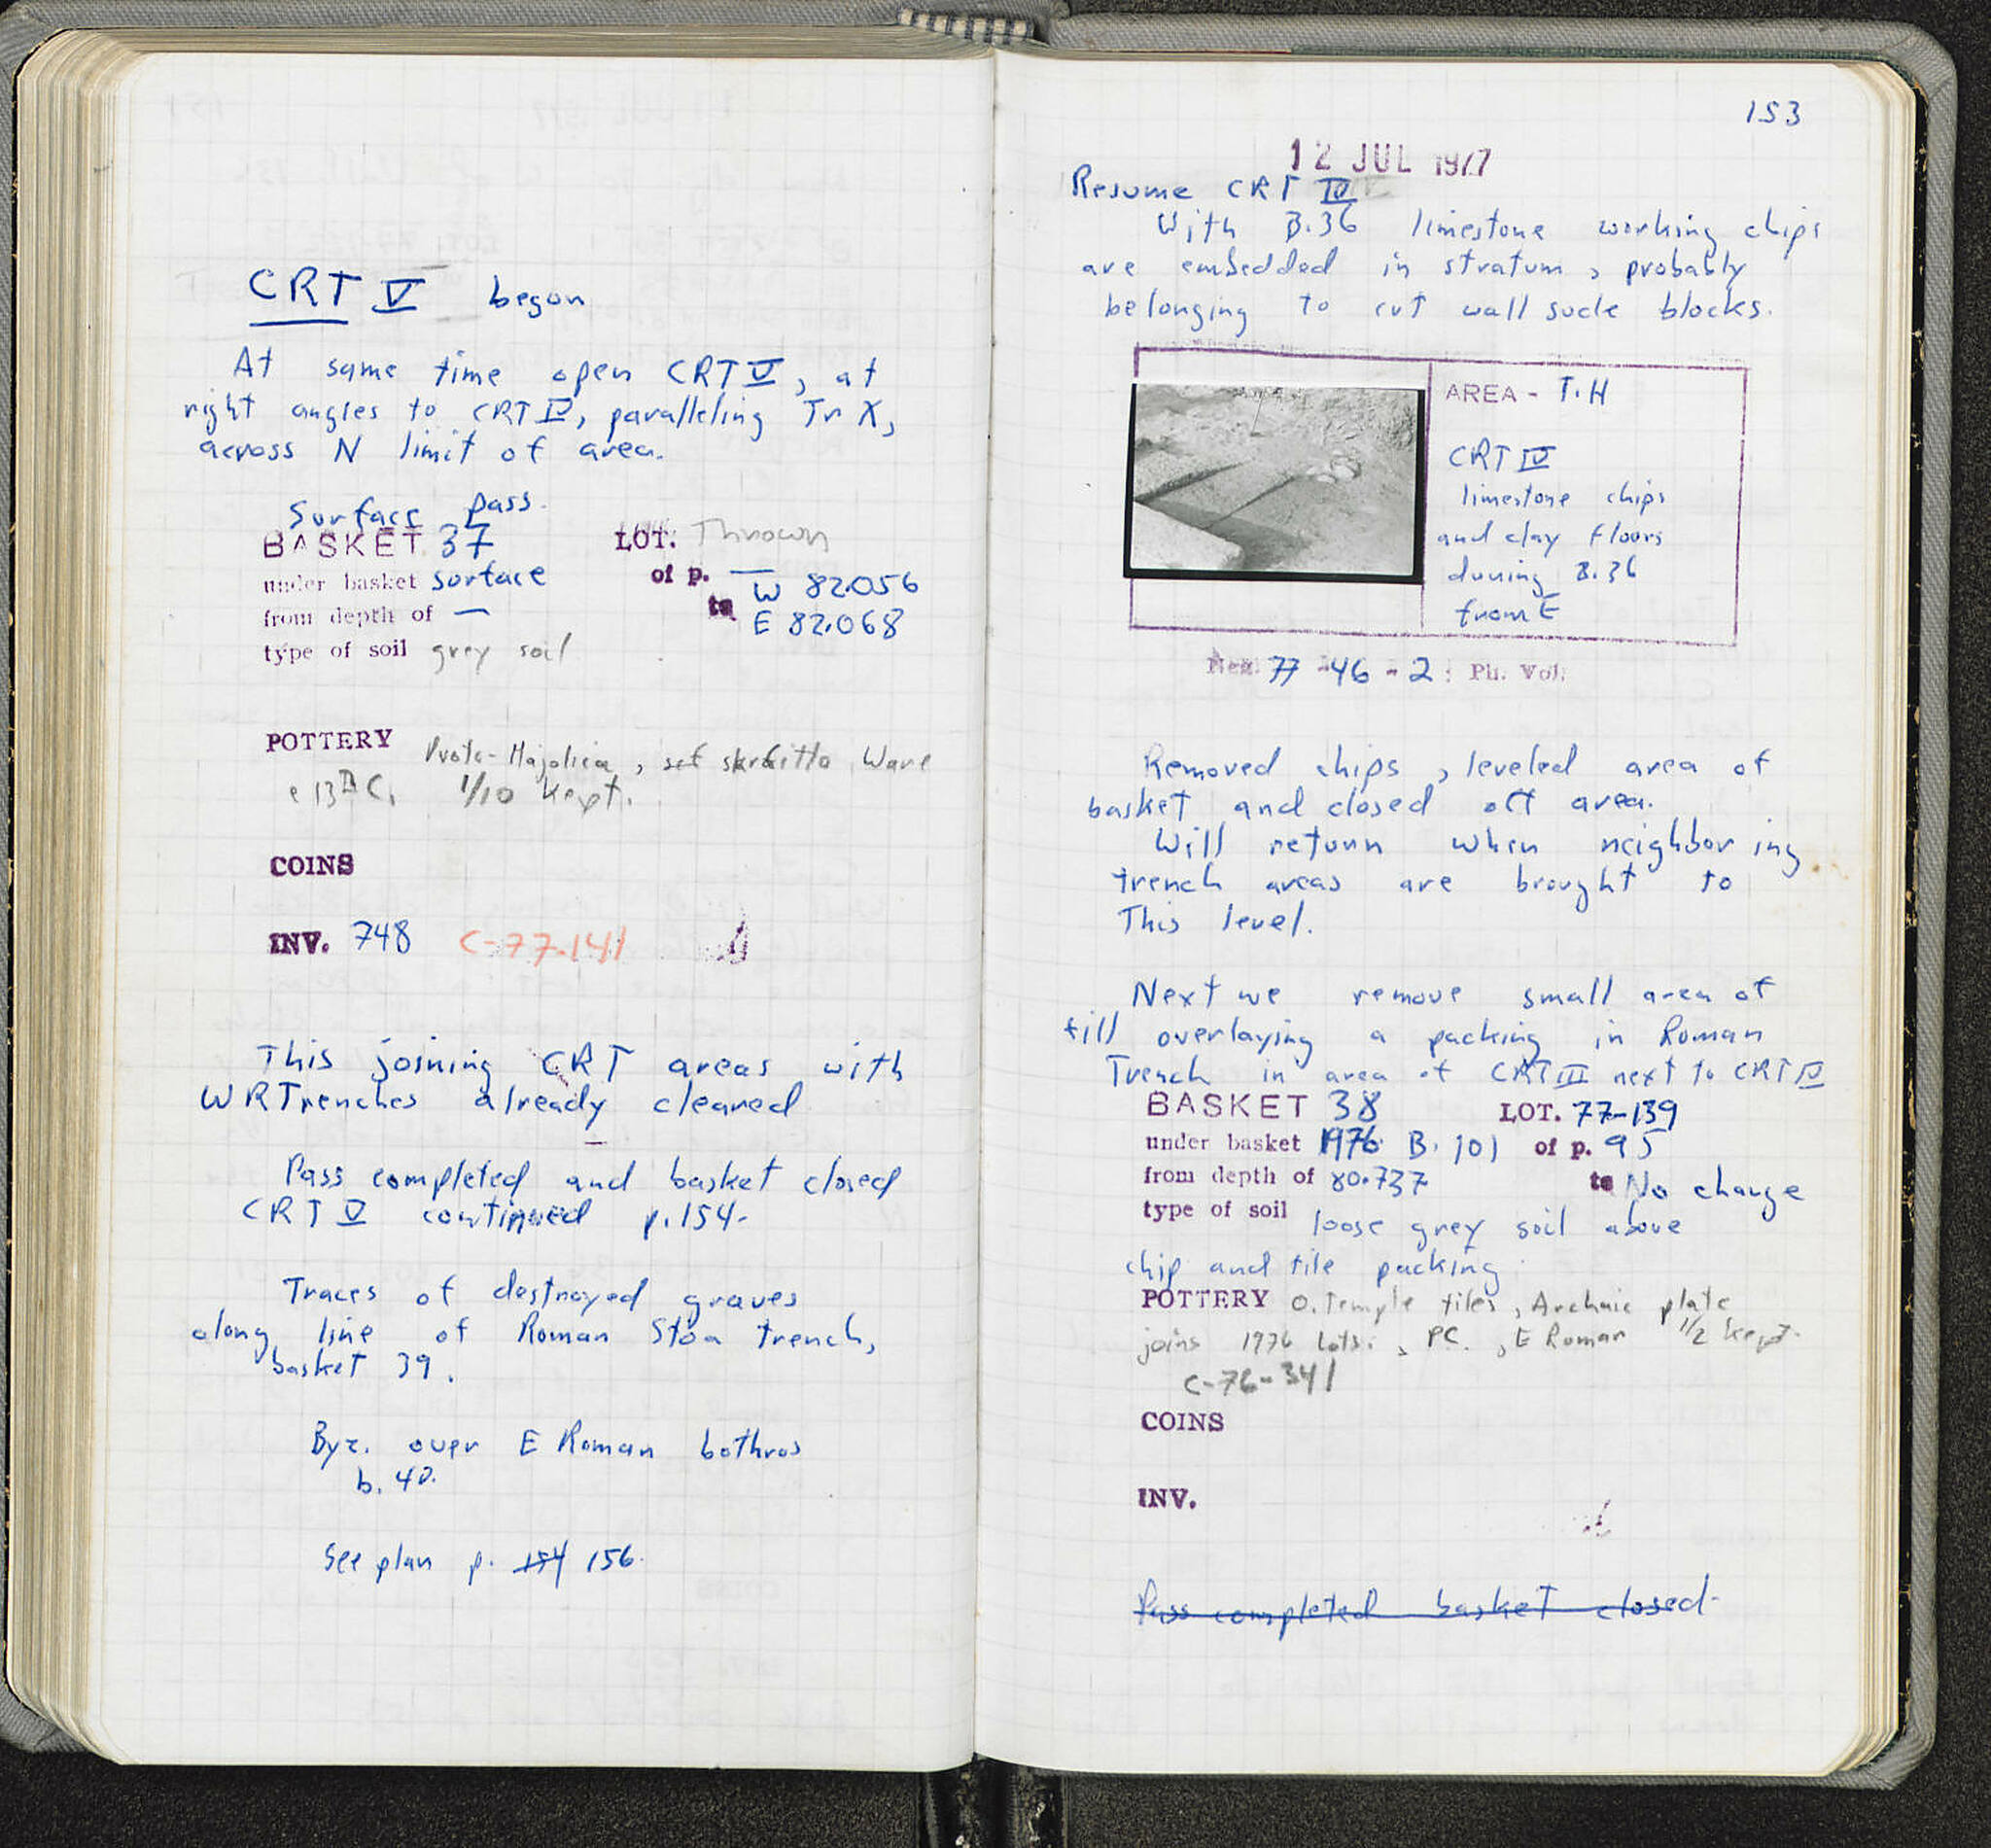 CRT V begun
At same time open CRT V, at
right angles to CRT IV, paralleling Tr X,
across N limit of area.
Surface pass.
BASKET 37 LOT. Thrown
under basket surface of p. —
from depth of — to W 82.056
E 82.068
type of soil grey soil
POTTERY Proto-Majolica, sgraffitto Ware
13th C. 1/10 kept.
COINS
INV. 748 C-77-141
This joining CRT areas with
WRTrenches already cleared
Pass completed and basket closed
CRT V continued p.154-
Traces of destroyed graves
along line of Roman Stoa trench,
basket 39.
Byz. over E Roman bothros
b. 40.
See plan p. 154 156.
153
12 JUL 1977
Resume CRT IV
With B.36 limestone working chips
are embedded in stratum, probably
belonging to cut wall socle blocks.
AREA - T.H
CRT IV
limestone chips
and clay floors
during B.36
from E
Neg. 77-46-2: Ph. Vol.
Removed chips, leveled area of
basket and closed off area.
Will return when neighboring
trench areas are brought to
This level.
Next we remove small area of
fill overlaying a packing in Roman
Trench in area of CRT III next to CRT IV
BASKET 38 LOT. 77-139
under basket 1976 B. 101 of p. 95
from depth of 80.737 to No change
type of soil loose grey soil above
chip and tile packing
POTTERY O. Temple tiles, Archaic plate
joins 1976 lots., PC., E Roman 1/2 kept.
C-76-341
COINS
INV.
Pass completed basket closed-